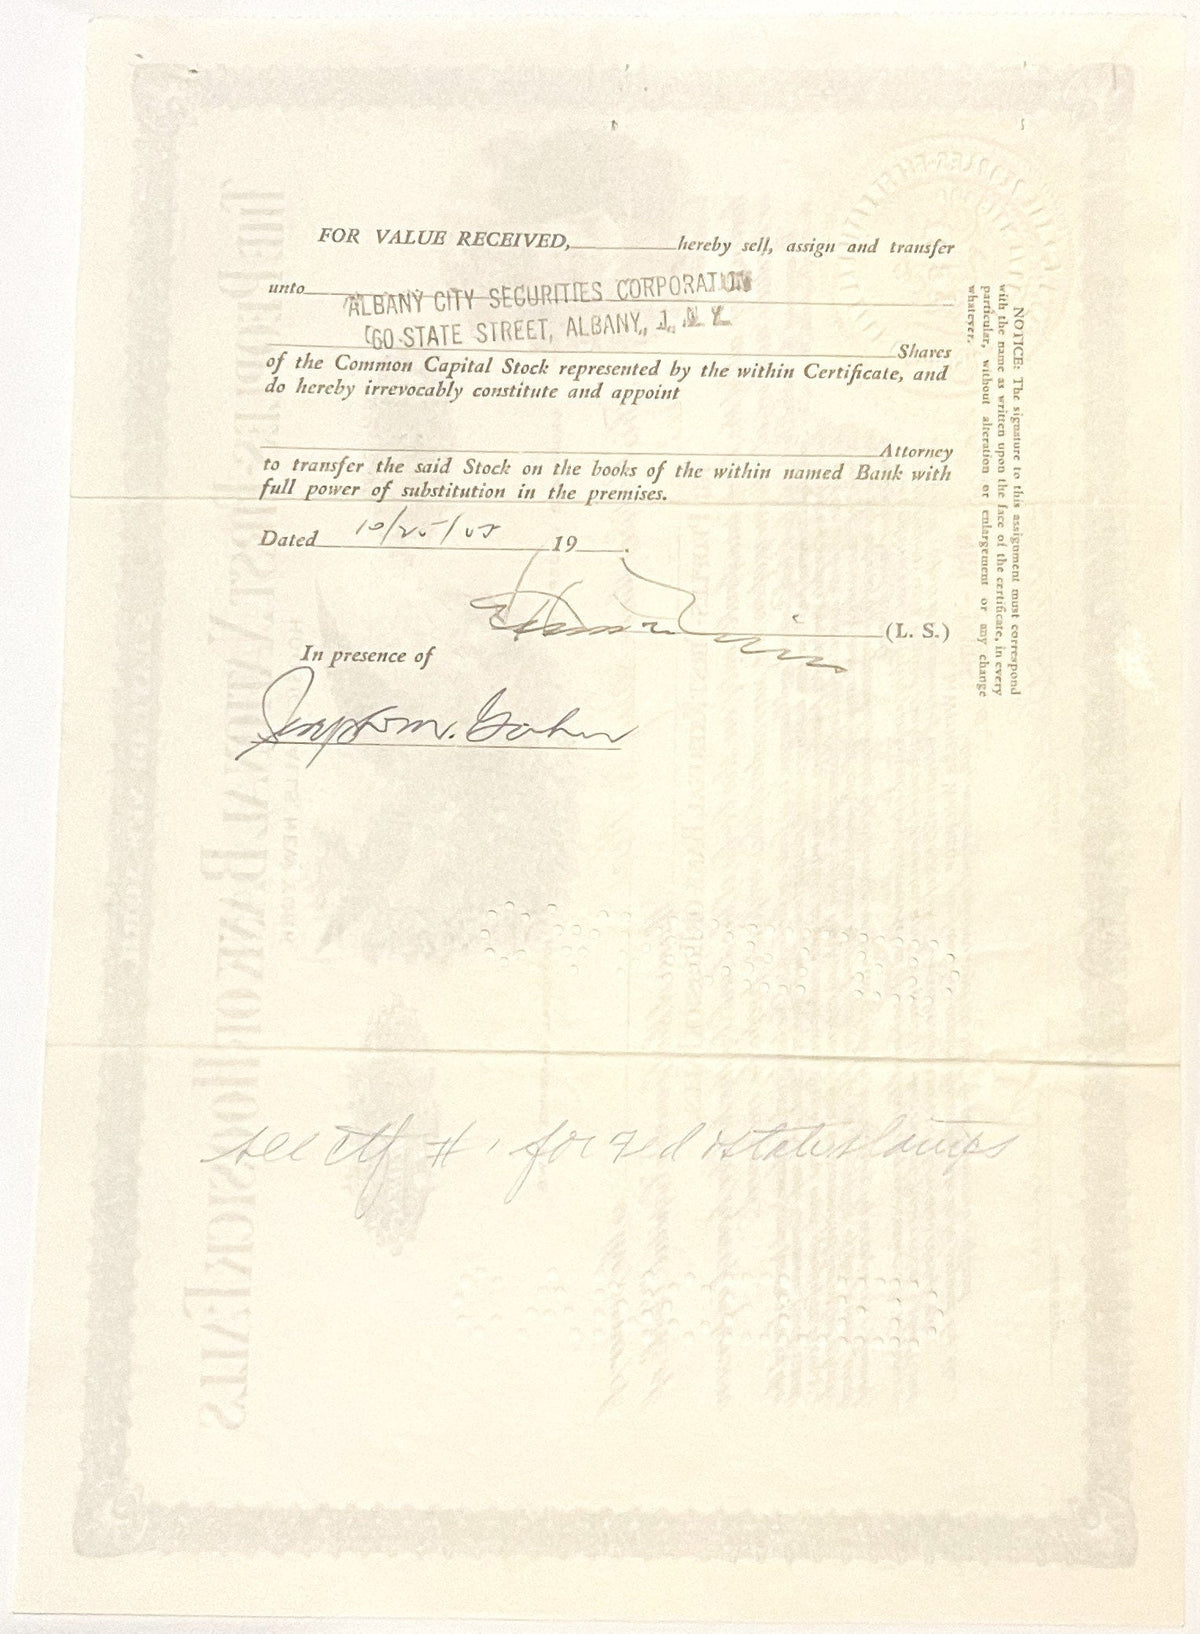 FOR VALUE RECEIVED, hereby sell, assign and transfer
unto
ALBANY CITY SECURITIES CORPORATION
60 STATE STREET, ALBANY, 1, N. Y.
Shares
of the Common Capital Stock represented by the within Certificate, and
do hereby irrevocably constitute and appoint
Attorney
to transfer the said Stock on the books of the within named Bank with
full power of substitution in the premises.
Dated 19 .
(L. S.)
In presence of
NOTICE: The signature to this assignment must correspond
with the name as written upon the face of the certificate, in every
particular, without alteration or enlargement or any change
whatever.
see ctf # 1 for Fed & state stamps